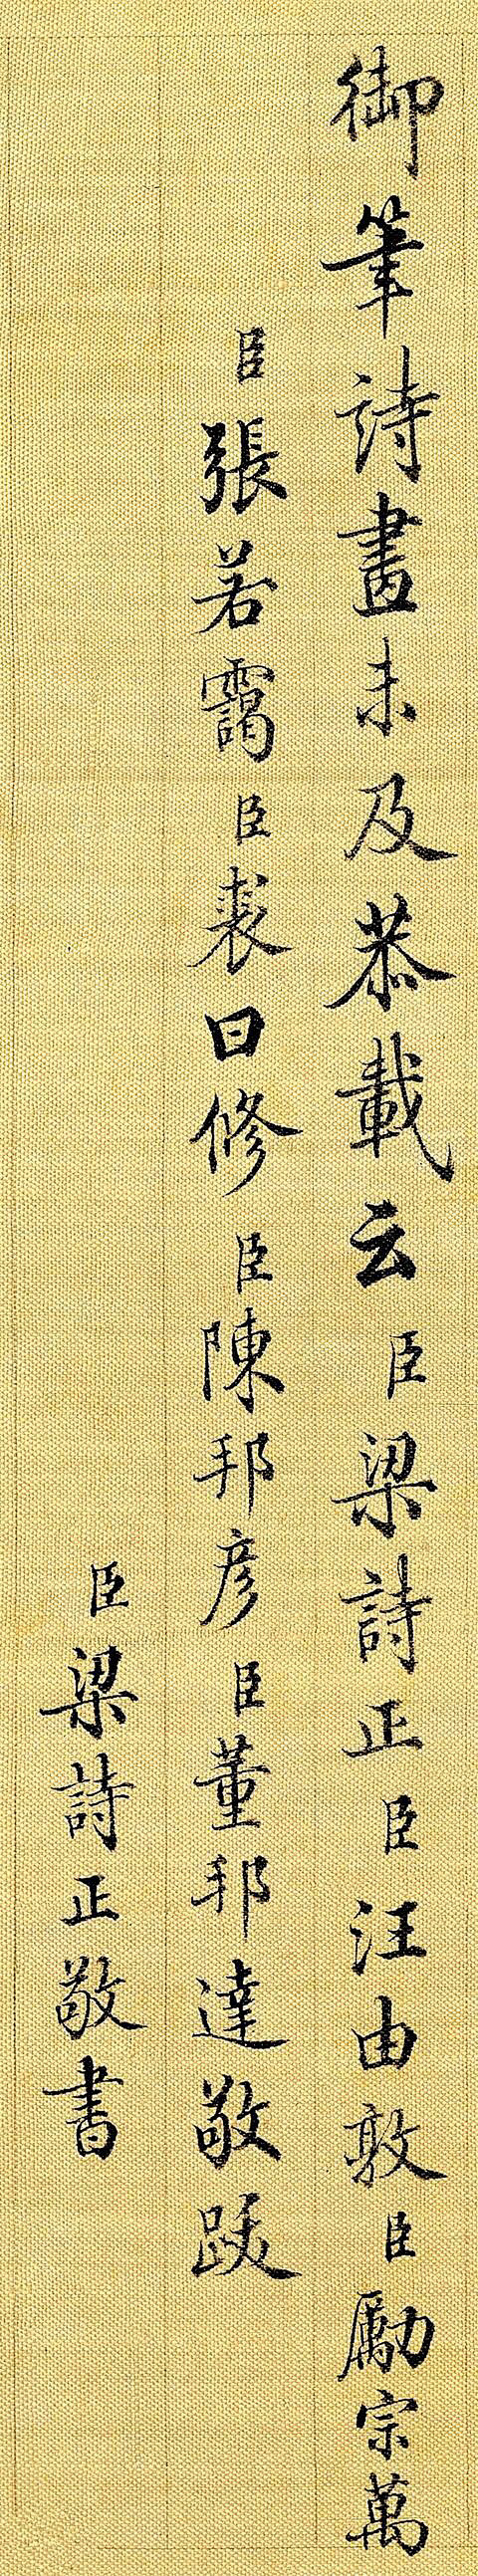 御筆詩畫未及恭載云臣梁詩正臣汪由敦臣勵宗萬
臣張若靄臣裘曰修臣陳邦彥臣董邦達敬跋
臣梁詩正敬書